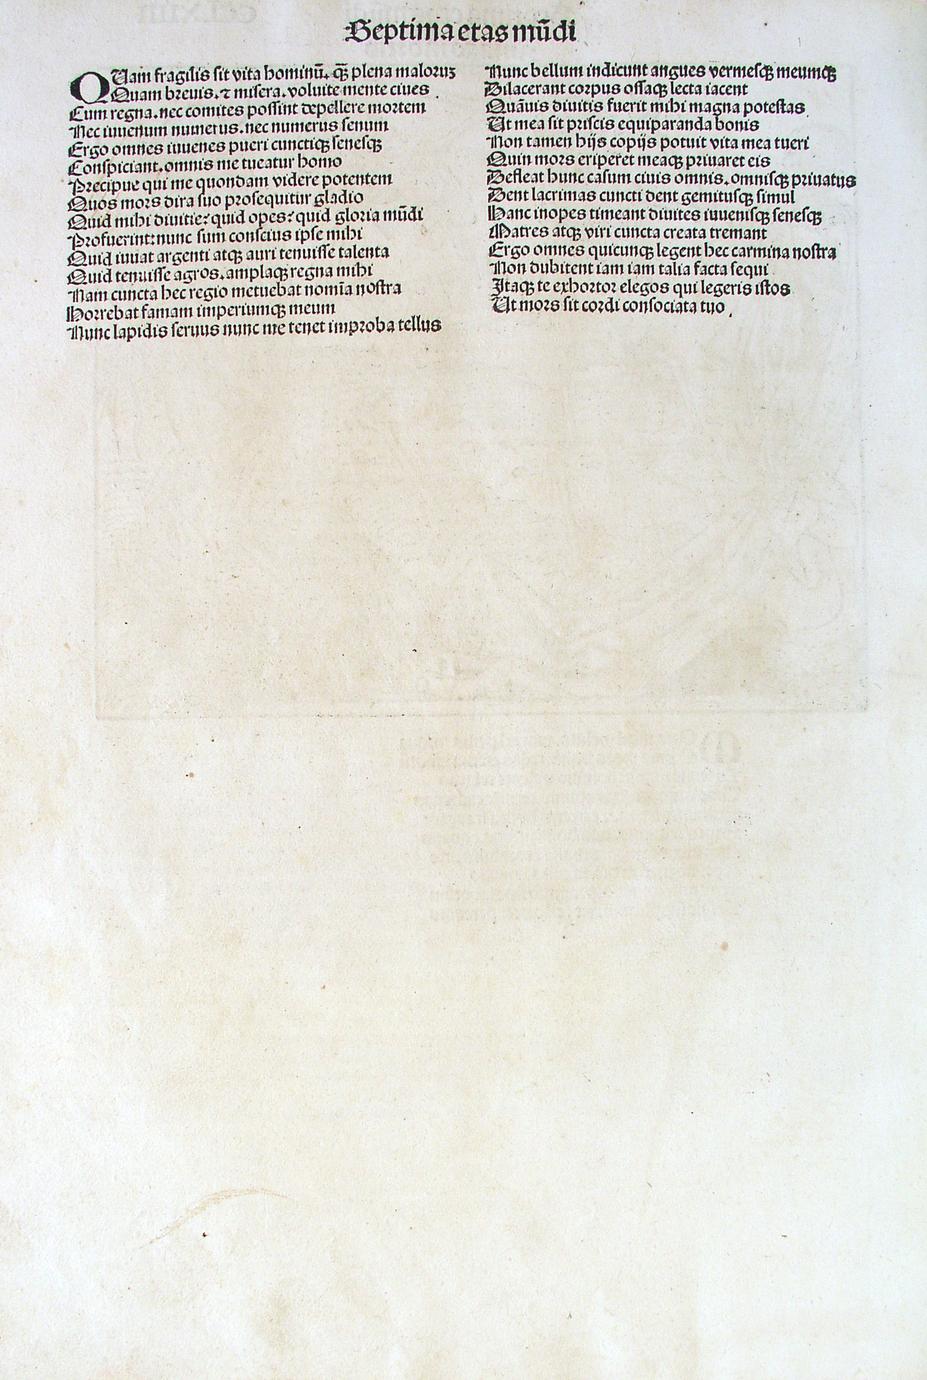 Septima etas mūdi
QUam fragilis sit vita hominū. q̄ꝫ plena maloruꝫ
Quam breuis. ⁊ misera. voluite mente ciues
Cum regna. nec comites possint depellere mortem
Nec iuuenum numerus. nec numerus senum
Ergo omnes iuuenes pueri cunctiqꝫ senesqꝫ
Conspiciant. omnis me tueatur homo
Precipue qui me quondam videre potentem
Quos mors dira suo prosequitur gladio
Quid mihi diuitie: quid opes: quid gloria mūdi
Profuerint: nunc sum conscius ipse mihi
Quid iuuat argenti atqꝫ auri tenuisse talenta
Quid tenuisse agros. amplaqꝫ regna mihi
Nam cuncta hec regio metuebat nomīa nostra
Horrebat famam imperiumqꝫ meum
Nunc lapidis seruus nunc me tenet improba tellus
Nunc bellum indicunt angues vermesqꝫ meumqꝫ
Dilacerant corpus ossaqꝫ lecta iacent
Quāuis diuitis fuerit mihi magna potestas
Ut mea sit priscis equiparanda bonis
Non tamen hijs copijs potuit vita mea tueri
Quin mors eriperet meaqꝫ priuaret eis
Defleat hunc casum ciuis omnis. omnisqꝫ priuatus
Dent lacrimas cuncti dent gemitusqꝫ simul
Hanc inopes timeant diuites iuuenisqꝫ senesqꝫ
Matres atqꝫ viri cuncta creata tremant
Ergo omnes quicunqꝫ legent hec carmina nostra
Non dubitent iam iam talia facta sequi
Itaqꝫ te exhortor elegos qui legeris istos
Ut mors sit cordi consociata tuo.